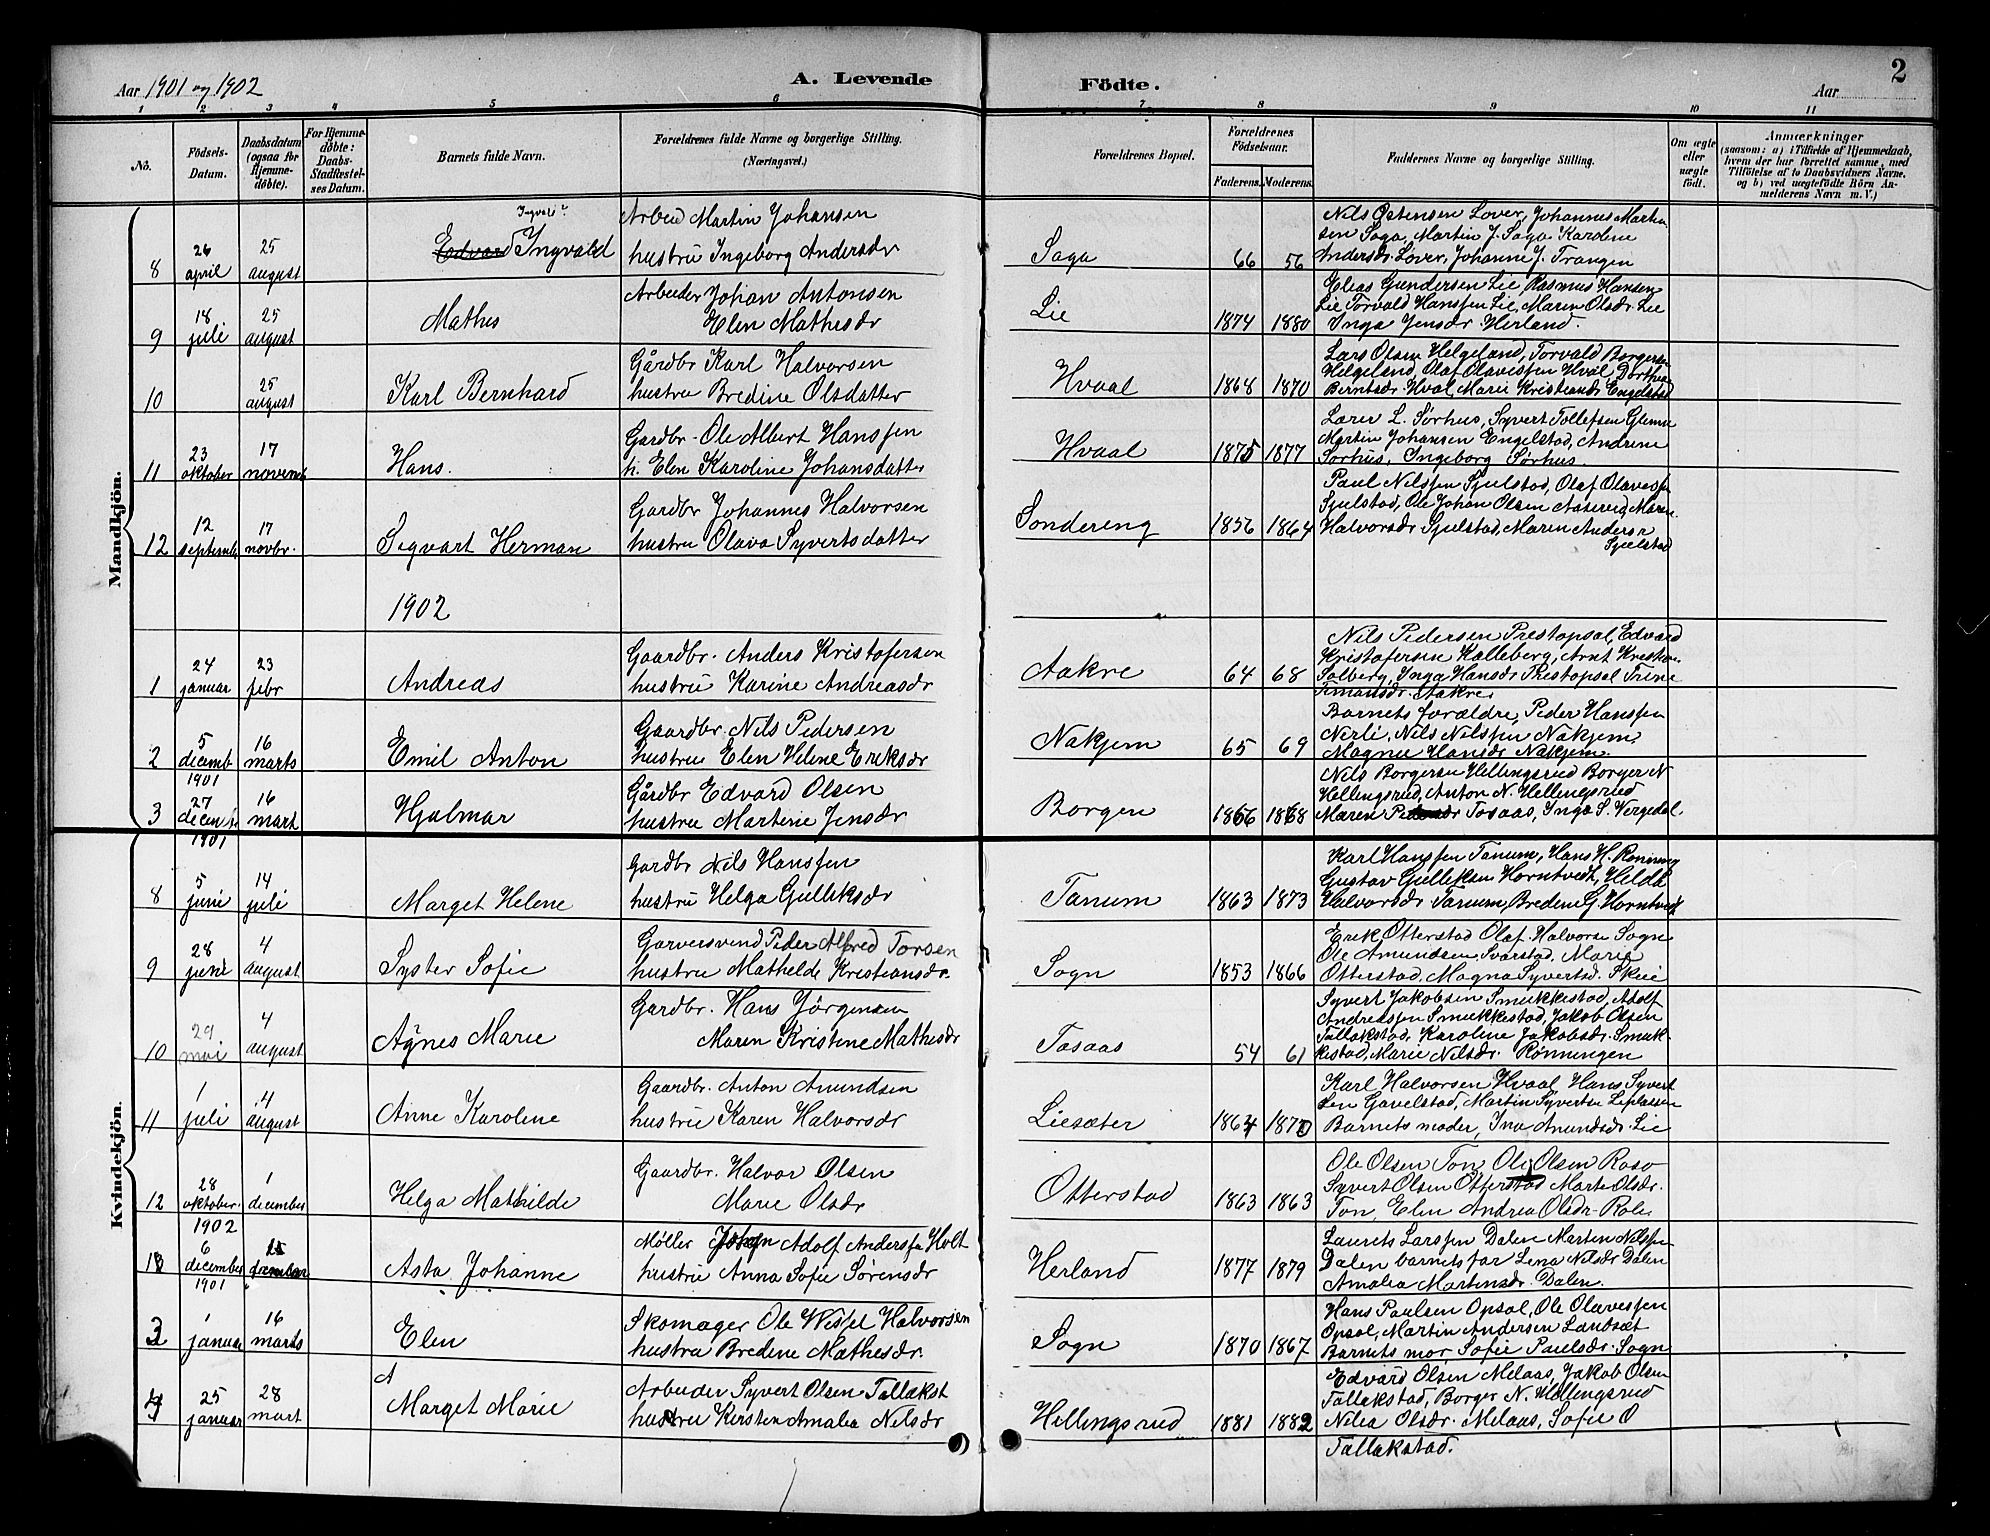 Aar 1901 og 1902
A. Levende
Födte.
2
Aar
1 2 3 4 5 6 7 8 9 10 11
No.
Födsels-
Datum.
Daabsdatum
(ogsaa for
Hjemme-
döbte).
For Hjemme-
döbte:
Daabs-
Stadfæstel-
ses Datum.
Barnets fulde Navn.
Forældrenes fulde Navne og borgerlige Stilling.
(Næringsvei.)
Forældrenes Bopæl.
Forældrenes
Födselsaar.
Faderens. Moderens.
Faddernes Navne og borgerlige Stilling.
Om ægte
eller
uægte
födt.
Anmærkninger
(saasom: a) i Tilfælde af Hjemmedaab,
hvem der har forrettet samme, med
Tilföielse af to Daabsvidners Navne.
og b) ved uægtefödte Börn An-
melderens Navn m. V.)
Mandkjön.
8
26
april
25
august
Ingvar?
Edvard Ingvald
Arbeid Martin Johansen
hustru Ingeborg Andersdr
Saga
66 56
Nils Østensen Løver, Johannes Martin
sen Saga, Martin J. Saga Karoline
Andersdr Løver, Johanne J. Trangen
9
18
juli
25
august
Mathis
Arbeider Johan Antonsen
Elen Mathisdr
Lie
1874 1880
Elias Gundersen Lie, Rasmus Hansen
Lie Torvald Hanssen Lie, Maren Olsdr Lie
Inga Jensdr Herland.
10
25
august
Karl Bernhard
Gårdbr Karl Halvorsen
hustru Bredine Olsdatter
Hvaal
1868 1870
Lars Olsen Helgeland, Torvald Borgersen
Helgeland, Olaf Olavessen Hval, Dorthea
Berntsdr. Hval, Marie Kristiansdr Engelstad
11
23
oktober
17
novemb
Hans.
Gardbr. Ole Albert Hanssen
h. Elen Karoline Johansdatter
Hvaal
1875 1877
Lærer L. Sørhus, Syvert Tollefsen Glenne
Martin Johansen Engelstad, Andrine
Sørhus, Ingeborg Sørhus.
12
12
septemb
17
novbr.
Sigvart Herman
Gardbr Johannes Halvorsen
hustru Olava Syvertsdatter
Søndereng
1856 1864
Paul Nilssen Sjulstad, Olaf Olavessen
Sjulstad, Ole Johan Olsen Aasereid, Maren
Halvorsdr Sjulstad, Maren Andersr
Sjulstad
1902
1
24
januar
23
febr
Andreas
Gaardbr. Anders Kristofersen
hustru Karine Andreasdr
Aakre
64 68
Nils Pedersen Prestopsal, Edvard
Kristofersen Kalleberg, Arnt Kristian
Solberg, Inga Hansdr Prestopsal Trine
Simonsdr. Aakre
2
5
decemb
1901
16
marts
Emil Anton
Gaardbr. Nils Pedersen
hustru Elen Helene Eriksdr
Nakjem
65 69
Barnets forældre, Peder Hanssen
Nerli, Nils Nilssen Nakjem,
Magna Hansdr Nakjem.
3
27
decem
1901
16
mart
Hjalmar
Gårdbr Edvard Olsen
hustru Martine Jensdr
Borgen
1866 1868
Nils Borgersen Hellingsrud Borger N
Hellingsrud, Anton N. Hellingsrud
Maren Tosaas, Inga S. Vergedal.
Kvindekjön.
8
5
juni
14
juli
Marget Helene
Gardbr Nils Hanssen
hustru Helga Gulliksdr
Tanum
1863 1873
Karl Hanssen Tanum, Hans H. Rønning
Gustav Gulliksen Horntvedt, Helda
Halvorsdr Tanum, Bredine G. Horntvedt
9
28
juni
4
august
Syster Sofie
Garversvend Peder Alfred Torsen
hustru Mathilde Kristiansdr.
Sogn
1853 1866
Erik Otterstad Olaf Halvorse Sogn
Ole Amundsen Svarstad, Marie
Otterstad, Magna Syvertsd. Skui
10
29
mai
4
august
Agnes Marie
Gardbr. Hans Jørgensen
Maren Kristine Mathisdr
Tosaas
54 61
Syvert Jakobsen Smukkestad, Adolf
Andreassen Smukkestad, Jakob Olsen
Tallakstad, Karoline Jakobsdr. Smuk-
kestad, Marie Nilsdr. Rønningen
11
1
juli
4
august
Anne Karoline
Gaardbr. Anton Amundsen
hustru Karen Halvorsdr
Liesæter
1864 1870
Karl Halvorsen Hvaal, Hans Syvert
sen Gavelstad, Martin Syvertse Lieplassen
Barnets moder, Ina Amundsdr. Lie
12
28
oktober.
1
december
Helga Mathilde
Gaardbr. Halvor Olsen
Marie Olsdr
Otterstad
1863 1863
Ole Olsen Ton, Ole Olsen Raso
Syvert Olsen Otterstad Marte Olsdr.
Ton, Elen Andrea Olsdr. Role
1902
1
6
december
1901
Asta Johanne
Møller Johan Adolf Anderss Holt
hustru Anna Sofie Sørensdr
Herland
1877 1879
Laurits Larssen Dalen Martin Nilssen
Dalen barnets far Lena Nilsdr Dalen
Amalia Martinsdr. Dalen.
3
1
januar
16
marts
Elen
Skomager Ole Wessel Halvorsen
hustru Bredine Mathisdr.
Sogn
1870 1867
Hans Paulsen Opsal, Ole Olavessen
Opsal, Martin Andersen Landsæt
Barnets mor Sofie Paulsdr. Sogn
4
25
januar
28
mart
A
Marget Marie
Arbeider Syvert Olsen Tallakst
hustru Kirsten Amalia Nilsdr
Hillingsrud
1881 1882
Edvard Olsen Melaas, Jakob Olsen
Tallakstad, Borger N. Hillingsrud
Nilia Olsdr. Melaas, Sofie O
Tallakstad.